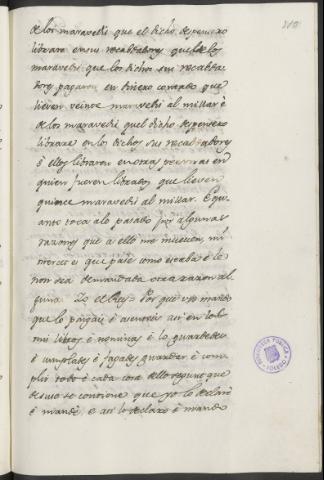 de los maravedis que el dicho despensero
librara en sus recabdadores, que de los
maravedis que los dichos sus recabda
dores pagaren en dinero contado que
lieven veinte maravedis al millar é
de los maravedis quel dicho despensero
librare en los dichos sus recabdadores
é ellos libraren en otras personas en
quien fueren librados que lieven
quince maravedis al millar. E qu
anto toca á lo pasado por algunas
razones que á ello me mueven, mi
merced es que pase como estaba é le
non sea demandada otra razon al
guna. Yo el Rey. Por que vos mando
que lo pongais é asenteis asi en los
mis libros é nominas é lo guardedes
é cumplades é fagades guardar é com
plir todo é cada cosa dello segunt que
desuso se contiene que yo lo declaré
é mandé, e asi lo declaro é mando
BIBLIOTECA PUBLICA
TOLEDO